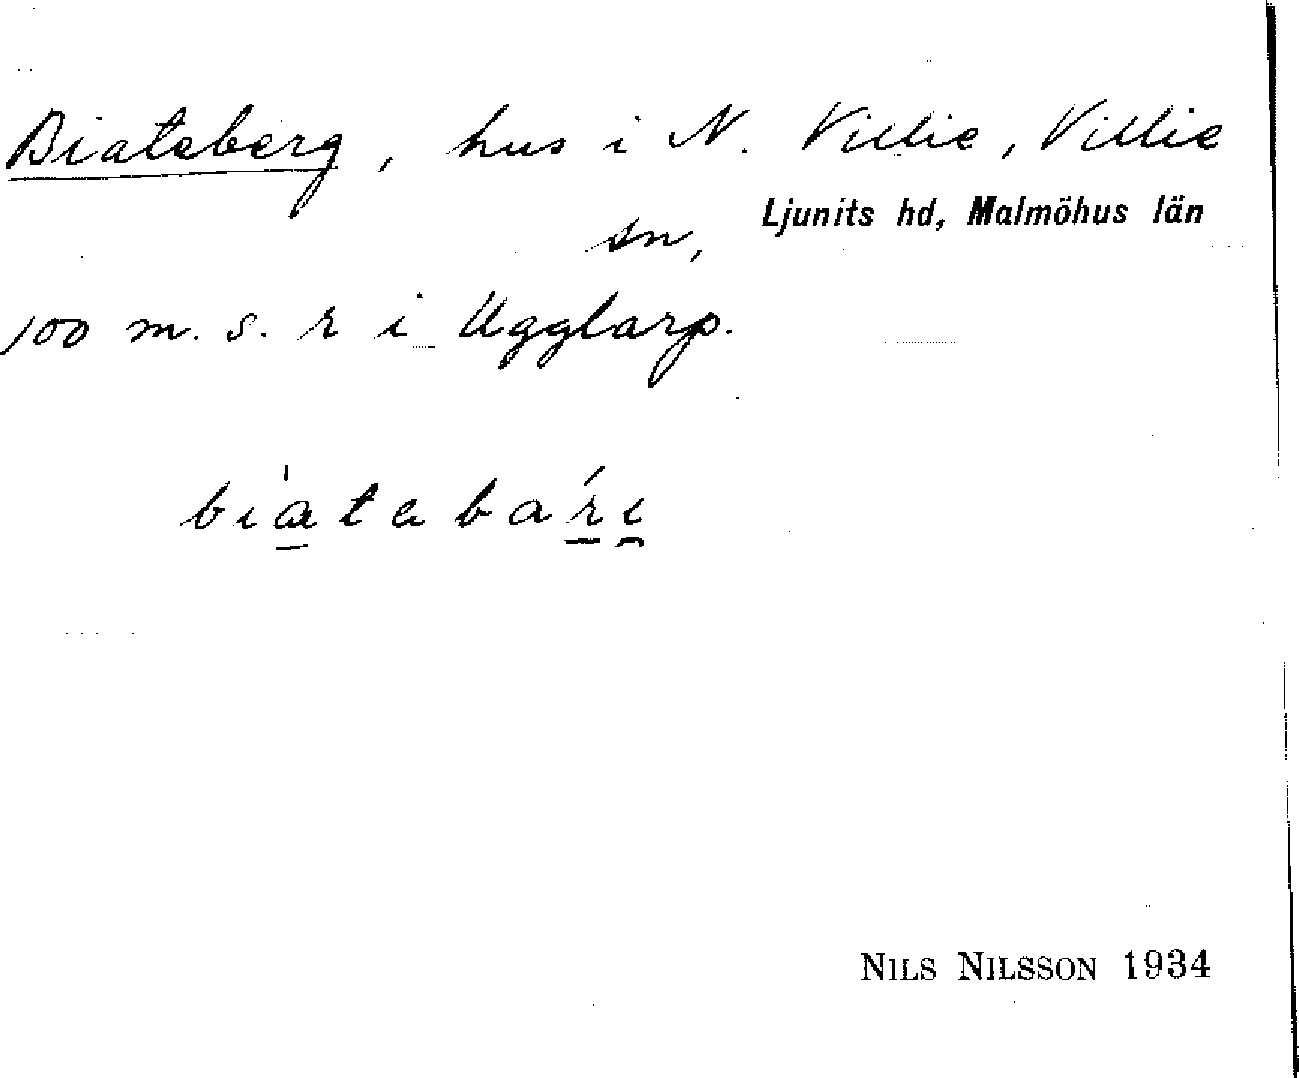 Biateberg, hus i N. Villie, Villie
sn, Ljunits hd, Malmöhus län
100 m. s. r i Ugglarp.
biatabari
NILS NILSSON 1934